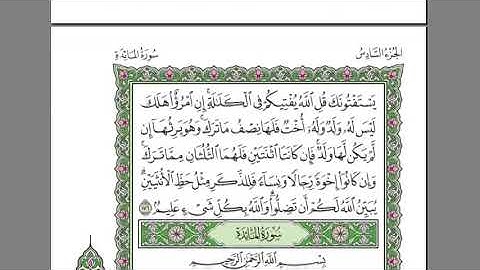 الجزء السادس
سورة المائدة
يَسْتَفْتُونَكَ قُلِ ٱللَّهُ يُفْتِيكُمْ فِى ٱلْكَلَـٰلَةِ ۚ إِنِ ٱمْرُؤٌا۟ هَلَكَ
لَيْسَ لَهُۥ وَلَدٌ وَلَهُۥٓ أُخْتٌ فَلَهَا نِصْفُ مَا تَرَكَ ۚ وَهُوَ يَرِثُهَآ إِن
لَّمْ يَكُن لَّهَا وَلَدٌ ۚ فَإِن كَانَتَا ٱثْنَتَيْنِ فَلَهُمَا ٱلثُّلُثَانِ مِمَّا تَرَكَ ۚ
وَإِن كَانُوٓا۟ إِخْوَةً رِّجَالًا وَنِسَآءً فَلِلذَّكَرِ مِثْلُ حَظِّ ٱلْأُنثَيَيْنِ ۗ
يُبَيِّنُ ٱللَّهُ لَكُمْ أَن تَضِلُّوا۟ ۗ وَٱللَّهُ بِكُلِّ شَىْءٍ عَلِيمٌۢ ١٧٦
سورة المائدة
بِسْمِ ٱللَّهِ ٱلرَّحْمَـٰنِ ٱلرَّحِيمِ